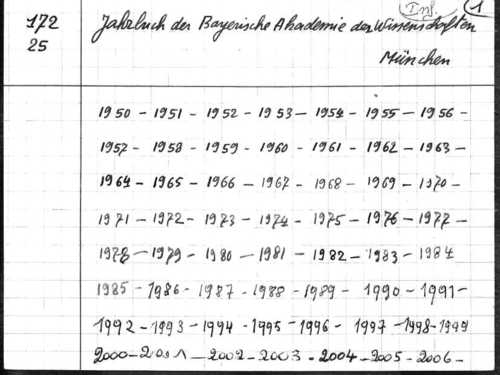 Inf. 1
172 Jahrbuch der Bayerische Akademie der Wissenschaften
25 München
1950 - 1951 - 1952 - 1953 - 1954 - 1955 - 1956 -
1957 - 1958 - 1959 - 1960 - 1961 - 1962 - 1963 -
1964 - 1965 - 1966 - 1967 - 1968 - 1969 - 1970 -
1971 - 1972 - 1973 - 1974 - 1975 - 1976 - 1977 -
1978 - 1979 - 1980 - 1981 - 1982 - 1983 - 1984
1985 - 1986 - 1987 - 1988 - 1989 - 1990 - 1991 -
1992 - 1993 - 1994 - 1995 - 1996 - 1997 - 1998 - 1999
2000 - 2001 - 2002 - 2003 - 2004 - 2005 - 2006 -